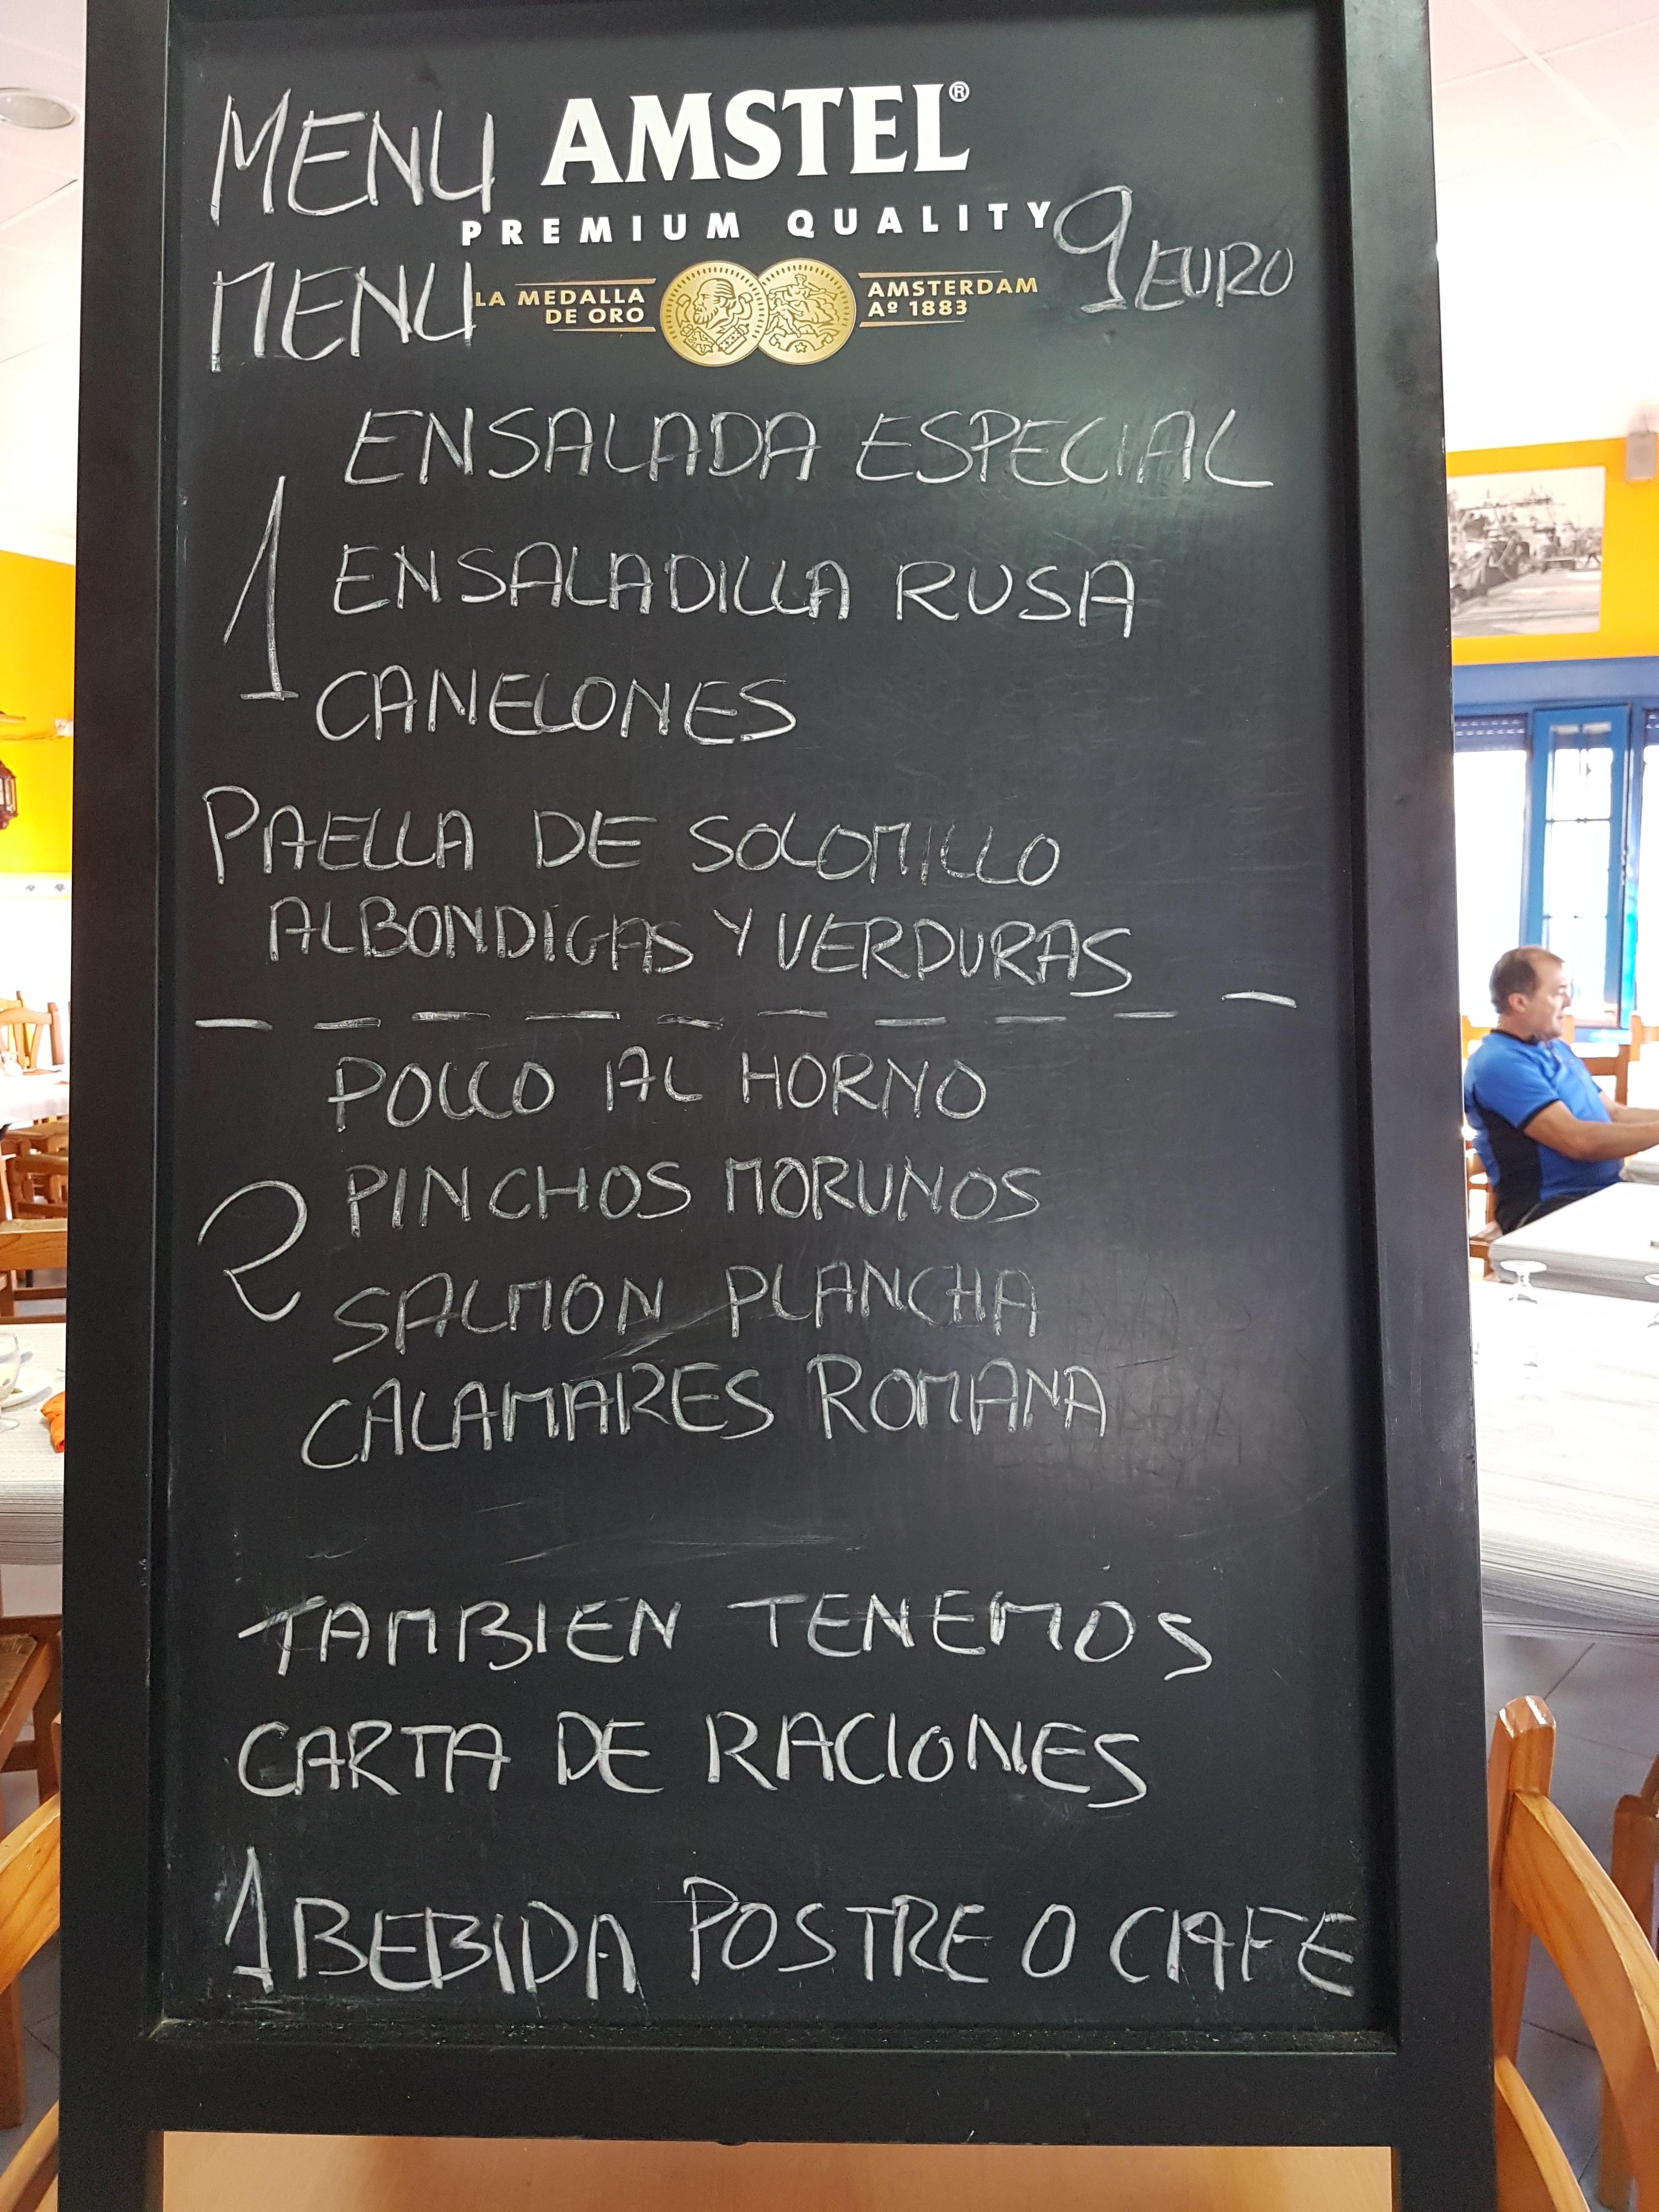 MENU AMSTEL®
PREMIUM QUALITY
9 EURO
MENU
LA MEDALLA DE ORO
AMSTERDAM Aº 1883
ENSALADA ESPECIAL
1
ENSALADILLA RUSA
CANELONES
PAELLA DE SOLOMILLO
ALBONDIGAS Y VERDURAS
POLLO AL HORNO
2
PINCHOS MORUNOS
SALMON PLANCHA
CALAMARES ROMANA
TAMBIEN TENEMOS
CARTA DE RACIONES
1 BEBIDA POSTRE O CAFE